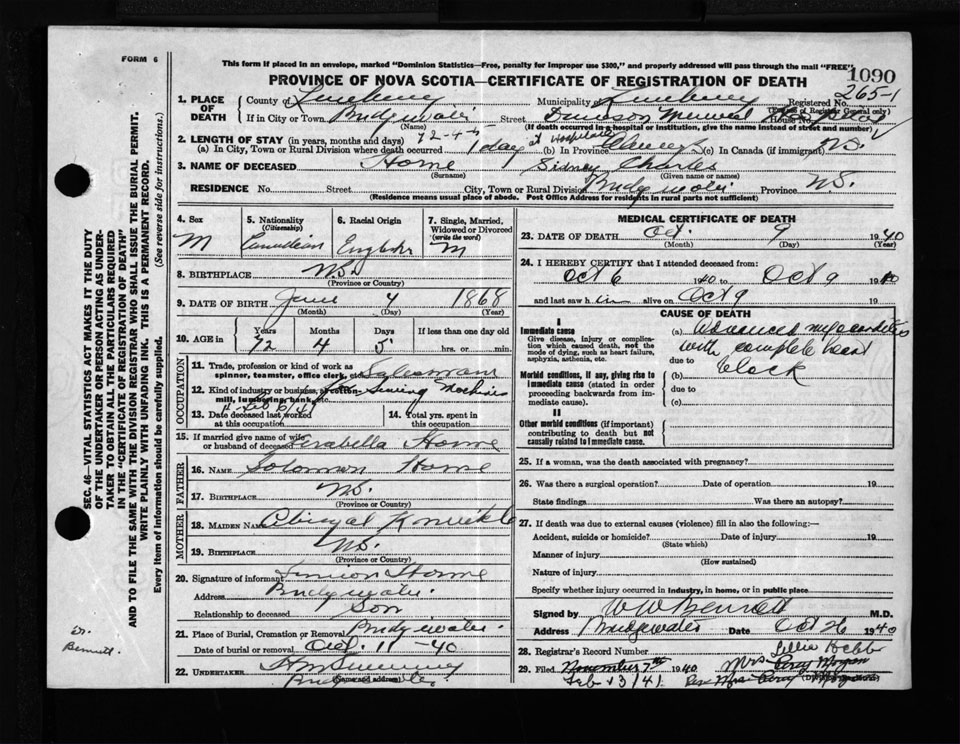 FORM 6
This form if placed in an envelope, marked "Dominion Statistics—Free, penalty for improper use $300," and properly addressed will pass through the mail "FREE"
1090
PROVINCE OF NOVA SCOTIA—CERTIFICATE OF REGISTRATION OF DEATH
265-1
1. PLACE OF DEATH
County of Lunenburg Municipality of Lunenburg Registered No.
(For use of Registrar General only)
If in City or Town Bridgewater Street Dawson Memorial House No.
(Name) (If death occurred in a hospital or institution, give the name instead of street and number)
72-4-5
2. LENGTH OF STAY (in years, months and days)
(a) In City, Town or Rural Division where death occurred 1 day at Hospital (b) In Province Always (c) In Canada (if immigrant) N.S.
3. NAME OF DECEASED Horne Sidney Charles
(Surname) (Given name or names)
RESIDENCE No. Street City, Town or Rural Division Bridgewater Province N.S.
(Residence means usual place of abode. Post Office Address for residents in rural parts not sufficient)
4. Sex M
5. Nationality (Citizenship) Canadian
6. Racial Origin English
7. Single, Married, Widowed or Divorced (write the word) M
8. BIRTHPLACE N.S.
(Province or Country)
9. DATE OF BIRTH June 4 1868
(Month) (Day) (Year)
10. AGE in Years Months Days If less than one day old
72 4 5 hrs. or min.
OCCUPATION
11. Trade, profession or kind of work as spinner, teamster, office clerk, etc. Salesman
12. Kind of industry or business, as cotton mill, lumbering, bank, etc. Sewing Machines
13. Date deceased last worked at this occupation
14. Total yrs. spent in this occupation
15. If married give name of wife or husband of deceased Horne
FATHER
16. NAME Solomon Horne
17. BIRTHPLACE N.S.
(Province or Country)
MOTHER
18. MAIDEN NAME
19. BIRTHPLACE N.S.
(Province or Country)
20. Signature of informant Horne
Address Bridgewater
Relationship to deceased Son
21. Place of Burial, Cremation or Removal Bridgewater
Date of burial or removal Oct. 11-40
22. UNDERTAKER
Bridgewater.
(Name and address)
MEDICAL CERTIFICATE OF DEATH
23. DATE OF DEATH Oct. 9 1940
(Month) (Day) (Year)
24. I HEREBY CERTIFY that I attended deceased from:
Oct 6 1940 to Oct 9 1940
and last saw him alive on Oct 9 19
CAUSE OF DEATH
I
Immediate cause
Give disease, injury or complication which caused death, not the mode of dying, such as heart failure, asphyxia, asthenia, etc.
(a) Advanced myocarditis
with complete heart
due to block
Morbid conditions, if any, giving rise to immediate cause (stated in order proceeding backwards from immediate cause).
(b)
due to
(c)
II
Other morbid conditions (if important) contributing to death but not causally related to immediate cause.
25. If a woman, was the death associated with pregnancy?
26. Was there a surgical operation? Date of operation 19
State findings Was there an autopsy?
27. If death was due to external causes (violence) fill in also the following:—
Accident, suicide or homicide? Date of injury 19
(State which)
Manner of injury
(How sustained)
Nature of injury
Specify whether injury occurred in industry, in home, or in public place
Signed by W W Bennett M.D.
Address Bridgewater Date Oct 26 1940
28. Registrar's Record Number
Lillie Hebb
29. Filed November 7th 1940 Mrs Percy Morgan
Feb 13/41 Mrs Percy
SEC. 46—VITAL STATISTICS ACT MAKES IT THE DUTY
OF THE UNDERTAKER OR PERSON ACTING AS UNDER-
TAKER TO OBTAIN ALL THE PARTICULARS REQUIRED
IN THE "CERTIFICATE OF REGISTRATION OF DEATH"
AND TO FILE THE SAME WITH THE DIVISION REGISTRAR WHO SHALL ISSUE THE BURIAL PERMIT.
WRITE PLAINLY WITH UNFADING INK. THIS IS A PERMANENT RECORD.
Every item of information should be carefully supplied. (See reverse side for instructions.)
Dr.
Bennett.